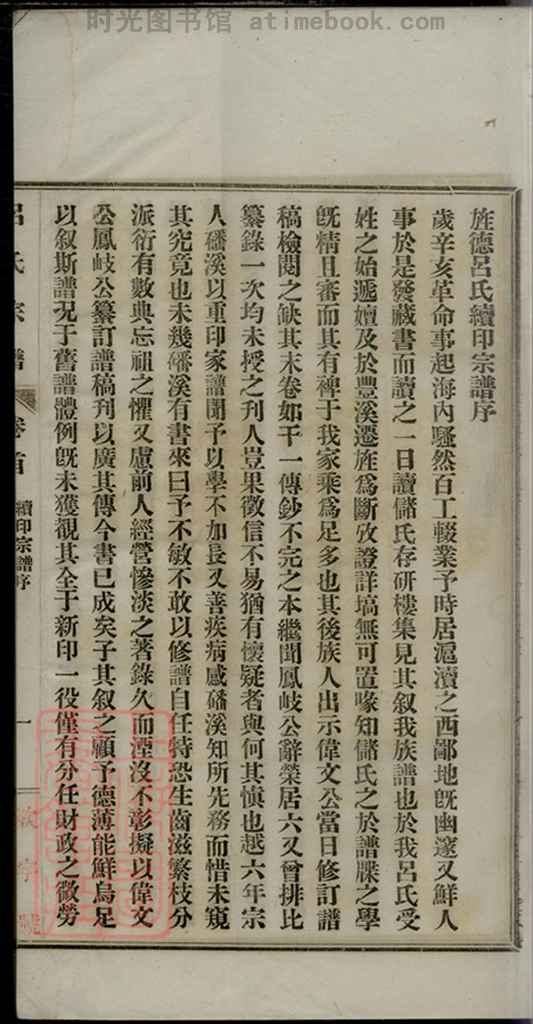 时光图书馆 atimebook.com
旌德呂氏續印宗譜序
歲辛亥革命事起海內騷然百工輟業予時居滬瀆之西鄙地旣幽邃又鮮人
事於是發藏書而讀之一日讀儲氏存硏樓集見其叙我族譜也於我呂氏受
姓之始遞嬗及於豐溪遷旌爲斷攷證詳塙無可置喙知儲氏之於譜牒之學
旣精且審而其有裨于我家乘爲足多也其後族人出示偉文公當日修訂譜
稿檢閱之缺其末卷如干一傳鈔不完之本繼聞鳳岐公辭榮居六又曾排比
纂錄一次均未授之刋人豈果徵信不易猶有懷疑者與何其愼也越六年宗
人磻溪以重印家譜聞予以學不加長又善疾病感磻溪知所先務而惜未窺
其究竟也未幾磻溪有書來曰予不敏不敢以修譜自任特恐生齒滋繁枝分
派衍有數典忘祖之懼又慮前人經營慘淡之著錄久而湮沒不彰擬以偉文
公鳳岐公纂訂譜稿刋以廣其傳今書已成矣子其叙之顧予德薄能鮮烏足
以叙斯譜况于舊譜體例旣未獲覩其全于新印一役僅有分任財政之微勞
呂氏宗譜 卷首 續印宗譜序 一